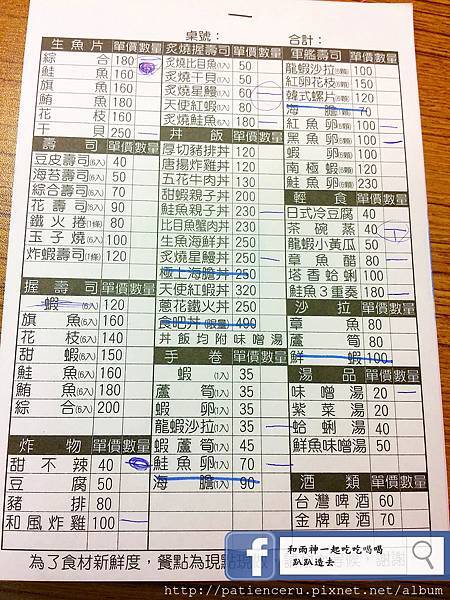 桌號： 合計：
生魚片 單價 數量
綜合 180
鮭魚 160
旗魚 160
鮪魚 180
花枝 160
干貝 250
壽司 單價 數量
豆皮壽司(6入) 40
海苔壽司(6入) 50
綜合壽司(6入) 70
花壽司(6入) 90
鐵火捲(1條) 80
玉子燒(6入) 100
炸蝦壽司(6入) 120
握壽司 單價 數量
蝦(6入) 120
旗魚(6入) 160
花枝(6入) 140
甜蝦(6入) 150
鮭魚(6入) 160
鮪魚(6入) 180
綜合(6入) 200
炸物 單價 數量
甜不辣 40
豆腐 50
豬排 80
和風炸雞 100
炙燒握壽司 單價 數量
炙燒比目魚(1入) 50
炙燒干貝(1入) 50
炙燒星鰻(1入) 60
天使紅蝦(1入) 80
炙燒鮭魚(6入) 180
丼飯 單價 數量
厚切豬排丼 120
唐揚炸雞丼 120
五花牛肉丼 130
甜蝦親子丼 230
鮭魚親子丼 230
比目魚蟹肉丼 230
生魚海鮮丼 250
炙燒星鰻丼 250
極上海膽丼 250
天使紅蝦丼 320
蔥花鐵火丼 250
食吧丼(限量) 490
丼飯均附味噌湯
手卷 單價 數量
蝦(1入) 35
蘆筍(1入) 35
蝦卵(1入) 35
龍蝦沙拉(1入) 35
蝦蘆筍(1入) 45
鮭魚卵(1入) 70
海膽(1入) 90
軍艦壽司 單價 數量
龍蝦沙拉(6顆) 100
紅卵花枝(6顆) 150
韓式螺片(6顆) 120
海膽(1顆) 70
紅魚卵(6顆) 100
黑魚卵(6顆) 100
蝦卵(6顆) 100
南極蝦(6顆) 120
鮭魚卵(6顆) 230
輕食 單價 數量
日式冷豆腐 40
茶碗蒸 40
龍蝦小黃瓜 50
章魚醋 80
塔香蛤蜊 100
鮭魚3重奏 180
沙拉 單價 數量
章魚 80
蘆筍 80
鮮蝦 100
湯品 單價 數量
味噌湯 20
紫菜湯 20
蛤蜊湯 40
鮮魚味噌湯 50
酒類 單價 數量
台灣啤酒 60
金牌啤酒 70
為了食材新鮮度，餐點為現點現
和雨神一起吃吃喝喝
趴趴造去
http://patienceru.pixnet.net/album